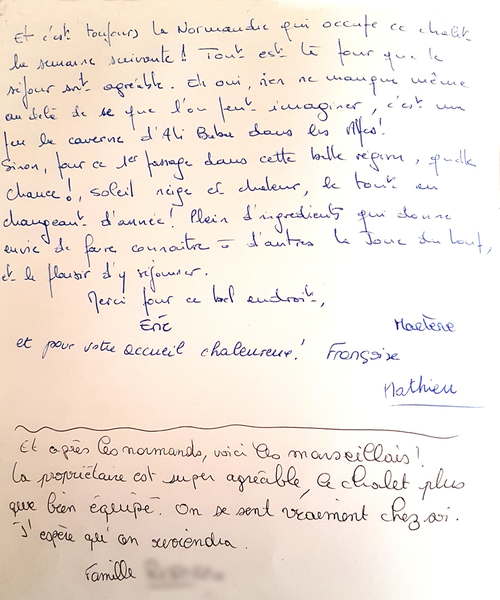 Et c'est toujours la Normandie qui occupe ce chalet
la semaine suivante ! Tout est là pour que le
séjour soit agréable. Eh oui, rien ne manque même
au delà de se que l'on peut imaginer, c'est un
peu la caverne d'Ali Baba dans les Alpes !
Sinon, pour ce 1er passage dans cette belle région, quelle
chance !, soleil neige et chaleur, le tout en
changeant d'année ! Plein d'ingredients qui donne
envie de faire connaitre à d'autres la Joue du Loup,
et le plaisir d'y séjourner.
Merci pour ce bel endroit,
Eric
et pour votre accueil chaleureux ! Françoise
Mathieu
Et après les normands, voici les marseillais !
La propriétaire est super agréable, le chalet plus
que bien équipé. On se sent vraiment chez soi.
J'espère qu'on reviendra.
Famille